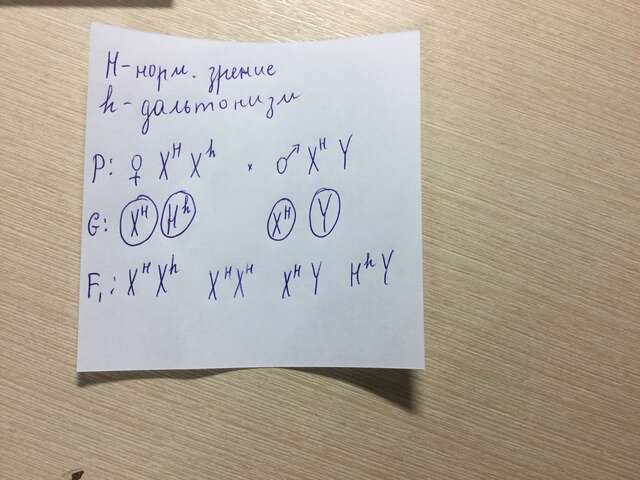 H - норм. зрение
h - дальтонизм
P: ♀ Xᴴ Xʰ × ♂ Xᴴ Y
G: Xᴴ Hʰ Xᴴ Y
F₁: Xᴴ Xʰ XᴴXᴴ Xᴴ Y Hʰ Y